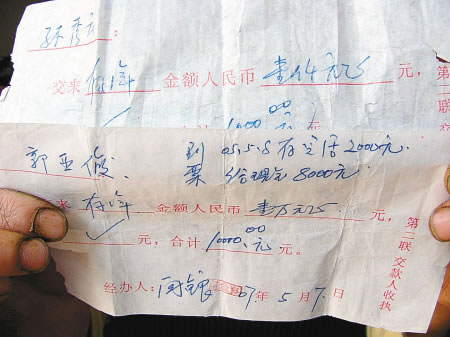 交来 存1年 金额人民币 壹仟元正 元，第二
合计 1000.00 元
郭亚俊、 到 05.5.8存定活2000元.
票 给现金8000元.
来 存1年 金额人民币 壹万元正 元，
元，合计10000.00元。
经办人： 07年5月7日
第二联 交款人收执